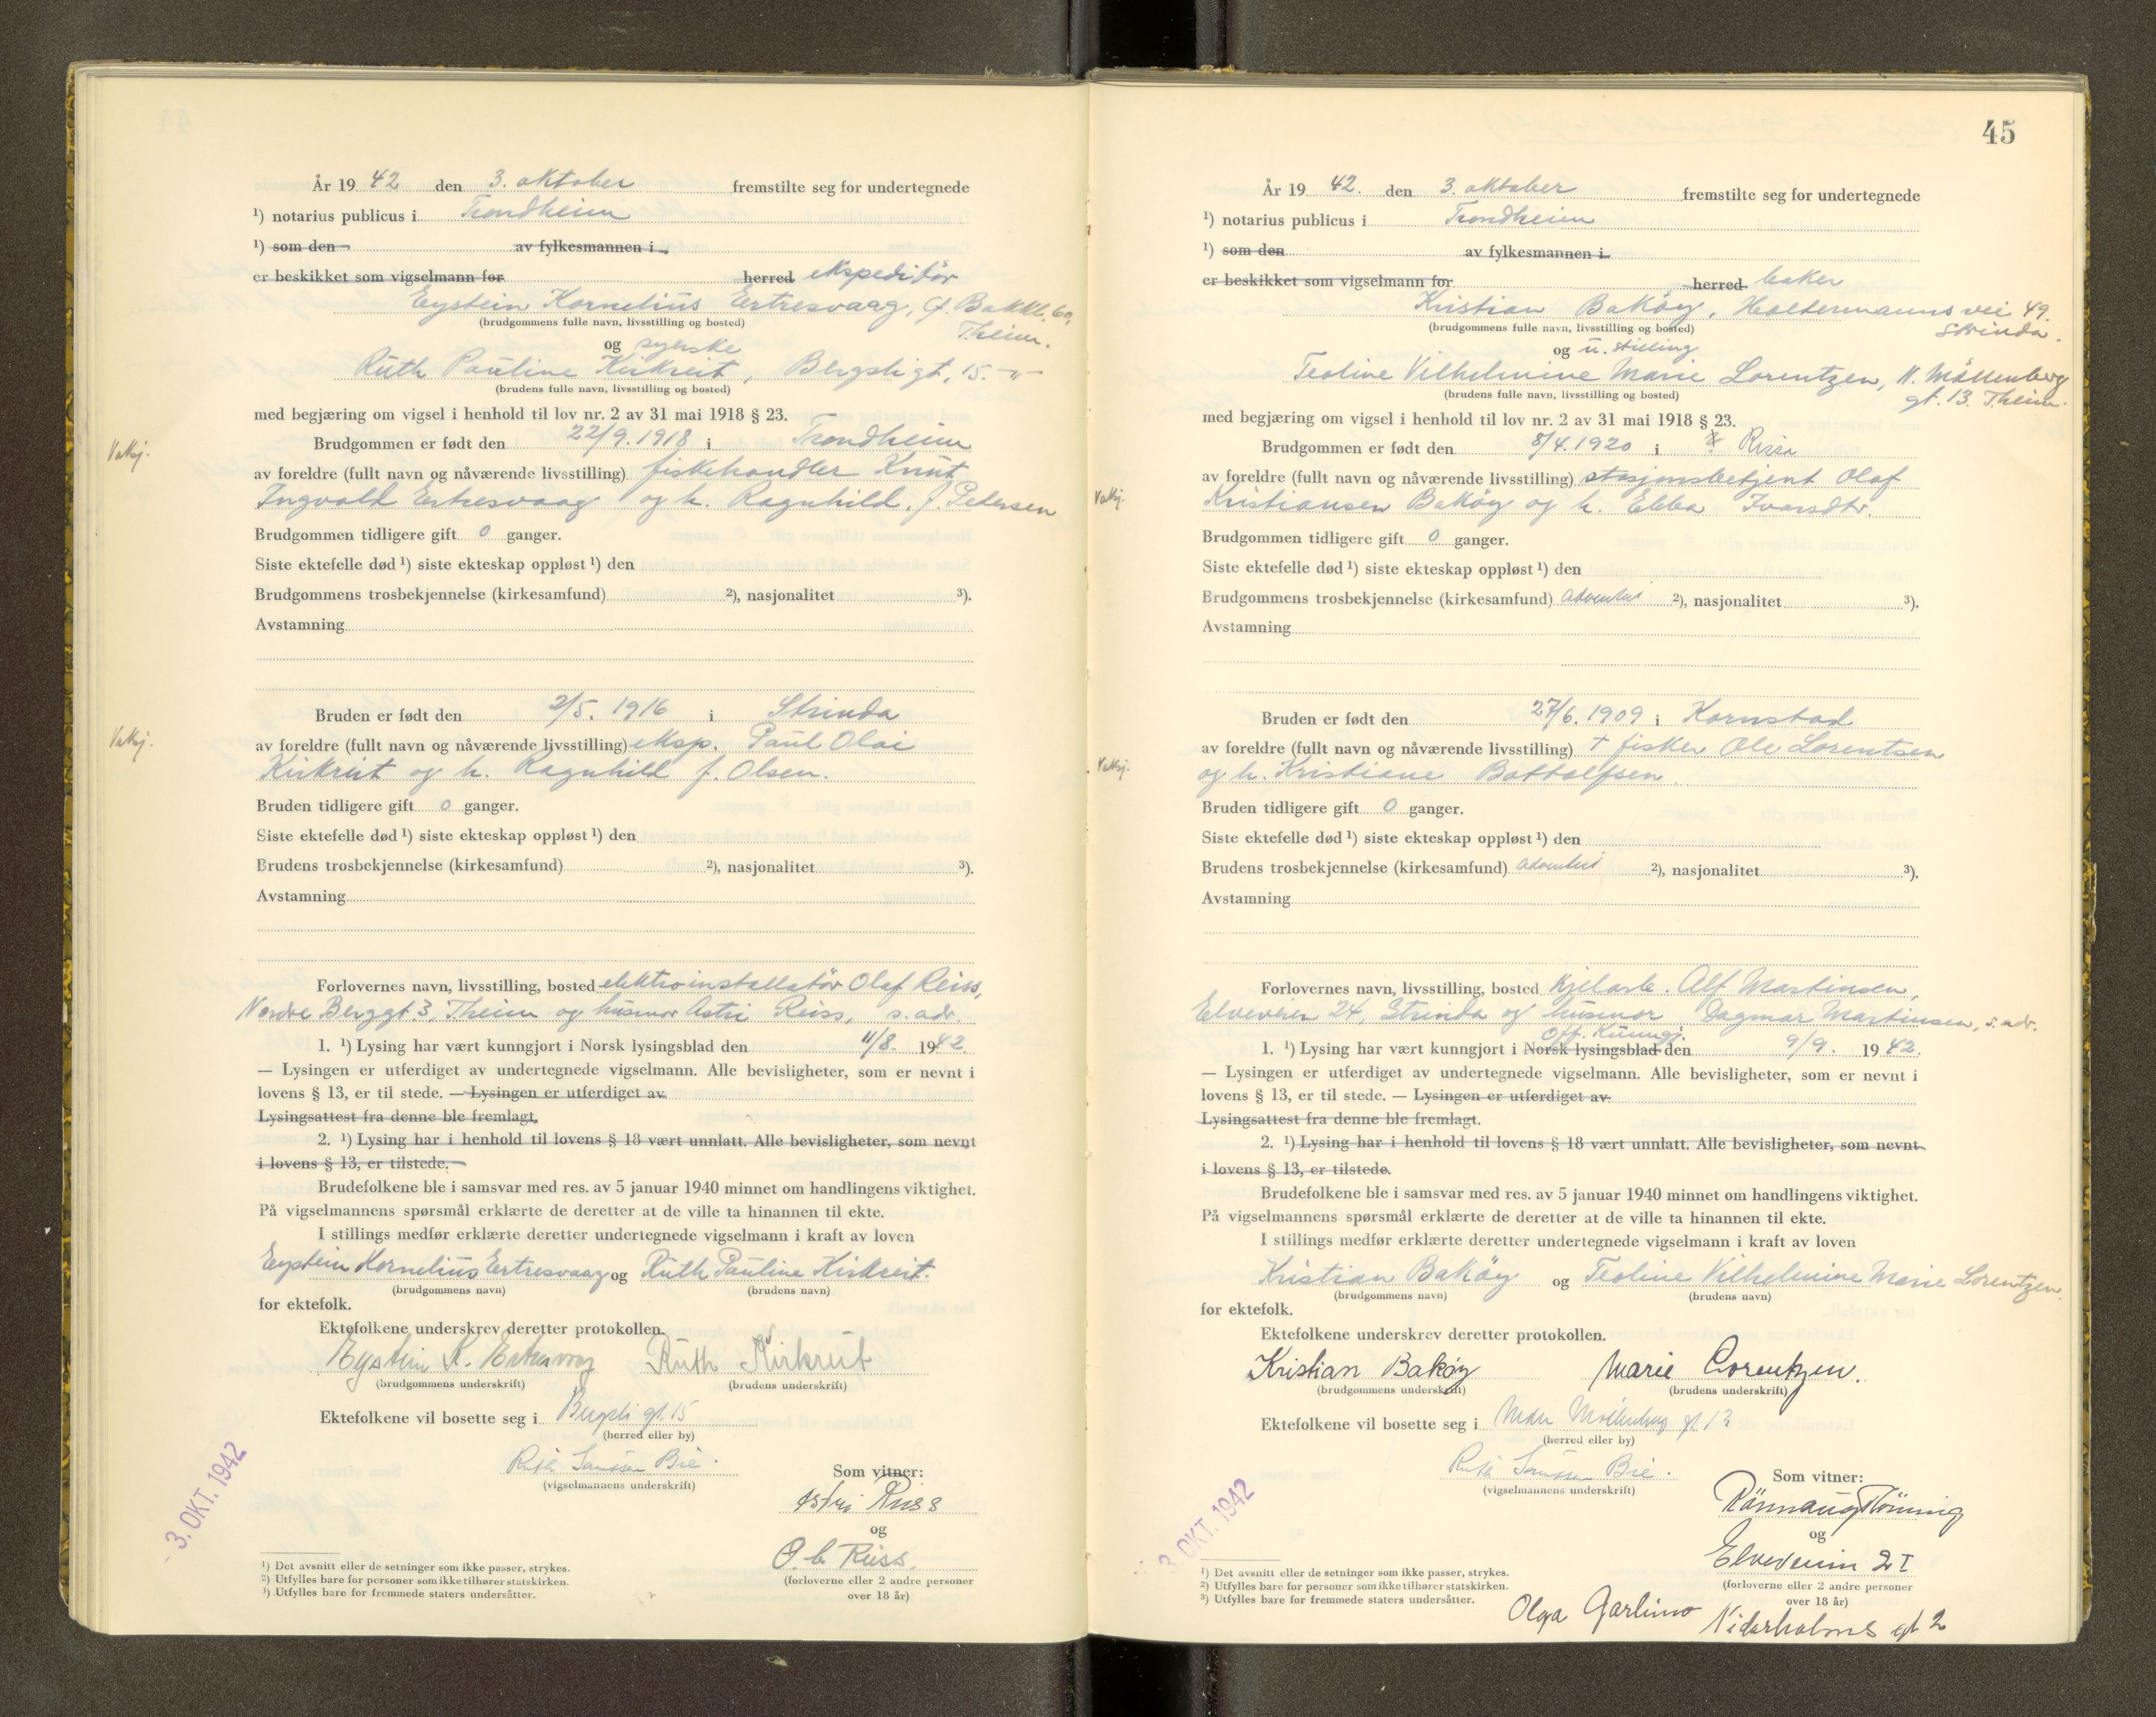 År 19 42 den 3. oktober fremstilte seg for undertegnede
¹) notarius publicus i Trondheim
¹) som den av fylkesmannen i
er beskikket som vigselmann for herred ekspeditör
Eystein Kornelius Ertresvaag, Ö. Bakkl. 60,
(brudgommens fulle navn, livsstilling og bosted) Theim.
og syerske
Ruth Pauline Kirkreit, Bergsligt. 15. -"-
(brudens fulle navn, livsstilling og bosted)
med begjæring om vigsel i henhold til lov nr. 2 av 31 mai 1918 § 23.
Vakj. Brudgommen er født den 22/9. 1918 i Trondheim
av foreldre (fullt navn og nåværende livsstilling) fiskehandler Knut
Ingvald Ertresvaag og h. Ragnhild f. Pedersen
Brudgommen tidligere gift 0 ganger.
Siste ektefelle død ¹) siste ekteskap oppløst ¹) den
Brudgommens trosbekjennelse (kirkesamfund) ²), nasjonalitet ³).
Avstamning
Bruden er født den 2/5. 1916 i Strinda
Vakj. av foreldre (fullt navn og nåværende livsstilling) eksp. Paul Olai
Kirkreit og h. Ragnhild f. Olsen.
Bruden tidligere gift 0 ganger.
Siste ektefelle død ¹) siste ekteskap oppløst ¹) den
Brudens trosbekjennelse (kirkesamfund) ²), nasjonalitet ³).
Avstamning
Forlovernes navn, livsstilling, bosted elektroinstallatör Olaf Reiss,
Nordre Berggt. 3, Theim og husmor Astri Reiss, s. adr.
1. ¹) Lysing har vært kunngjort i Norsk lysingsblad den 11/8. 1942.
— Lysingen er utferdiget av undertegnede vigselmann. Alle bevisligheter, som er nevnt i
lovens § 13, er til stede. — Lysingen er utferdiget av
Lysingsattest fra denne ble fremlagt.
2. ¹) Lysing har i henhold til lovens § 18 vært unnlatt. Alle bevisligheter, som nevnt
i lovens § 13, er tilstede.
Brudefolkene ble i samsvar med res. av 5 januar 1940 minnet om handlingens viktighet.
På vigselmannens spørsmål erklærte de deretter at de ville ta hinannen til ekte.
I stillings medfør erklærte deretter undertegnede vigselmann i kraft av loven
Eystein Kornelius Ertresvaag og Ruth Pauline Kirkreit.
(brudgommens navn) (brudens navn)
for ektefolk.
Ektefolkene underskrev deretter protokollen.
Eystein K. Ertresvaag Ruth Kirkreit
(brudgommens underskrift) (brudens underskrift)
Ektefolkene vil bosette seg i Bergsli gt. 15
(herred eller by)
Ruth Bie.
(vigselmannens underskrift)
Som vitner:
Astri Reiss
og
O. Reiss.
(forloverne eller 2 andre personer
over 18 år)
- 3. OKT. 1942
¹) Det avsnitt eller de setninger som ikke passer, strykes.
²) Utfylles bare for personer som ikke tilhører statskirken.
³) Utfylles bare for fremmede staters undersåtter.
45
År 19 42. den 3. oktober fremstilte seg for undertegnede
¹) notarius publicus i Trondheim
¹) som den av fylkesmannen i
er beskikket som vigselmann for herred baker
Kristian Baköy, Holtermanns vei 49.
(brudgommens fulle navn, livsstilling og bosted) Strinda.
og u. stilling
Teoline Vilhelmine Marie Lorentzen, N. Möllenberg
(brudens fulle navn, livsstilling og bosted) gt. 13. Theim.
med begjæring om vigsel i henhold til lov nr. 2 av 31 mai 1918 § 23.
Brudgommen er født den 8/4. 1920 i Rissa
av foreldre (fullt navn og nåværende livsstilling) stasjonsbetjent Olaf
Vakj. Kristiansen Baköy og h. Ebba Ivarsdtr.
Brudgommen tidligere gift 0 ganger.
Siste ektefelle død ¹) siste ekteskap oppløst ¹) den
Brudgommens trosbekjennelse (kirkesamfund) Adventist ²), nasjonalitet ³).
Avstamning
Bruden er født den 27/6. 1909 i Kornstad
av foreldre (fullt navn og nåværende livsstilling) † fisker Ole Lorentsen
Vakj. og h. Kristiane Bottolfsen.
Bruden tidligere gift 0 ganger.
Siste ektefelle død ¹) siste ekteskap oppløst ¹) den
Brudens trosbekjennelse (kirkesamfund) Adventist ²), nasjonalitet ³).
Avstamning
Forlovernes navn, livsstilling, bosted Kjelarb. Alf Martinsen,
Elveveien 24, Strinda og husmor Dagmar Martinsen, s. adr.
Off. Kunngj.
1. ¹) Lysing har vært kunngjort i Norsk lysingsblad den 9/9. 1942.
— Lysingen er utferdiget av undertegnede vigselmann. Alle bevisligheter, som er nevnt i
lovens § 13, er til stede. — Lysingen er utferdiget av
Lysingsattest fra denne ble fremlagt.
2. ¹) Lysing har i henhold til lovens § 18 vært unnlatt. Alle bevisligheter, som nevnt
i lovens § 13, er tilstede.
Brudefolkene ble i samsvar med res. av 5 januar 1940 minnet om handlingens viktighet.
På vigselmannens spørsmål erklærte de deretter at de ville ta hinannen til ekte.
I stillings medfør erklærte deretter undertegnede vigselmann i kraft av loven
Kristian Baköy og Teoline Vilhelmine Marie Lorentzen
(brudgommens navn) (brudens navn)
for ektefolk.
Ektefolkene underskrev deretter protokollen.
Kristian Bakøy Marie Lorentzen.
(brudgommens underskrift) (brudens underskrift)
Ektefolkene vil bosette seg i Nedre Möllenberg gt. 13
(herred eller by)
Ruth Bie.
(vigselmannens underskrift)
Som vitner:
Rönnaug
og
Elveveien 2 I
(forloverne eller 2 andre personer
over 18 år)
Olga Garlimo Nidarholms gt 2
3. OKT. 1942
¹) Det avsnitt eller de setninger som ikke passer, strykes.
²) Utfylles bare for personer som ikke tilhører statskirken.
³) Utfylles bare for fremmede staters undersåtter.